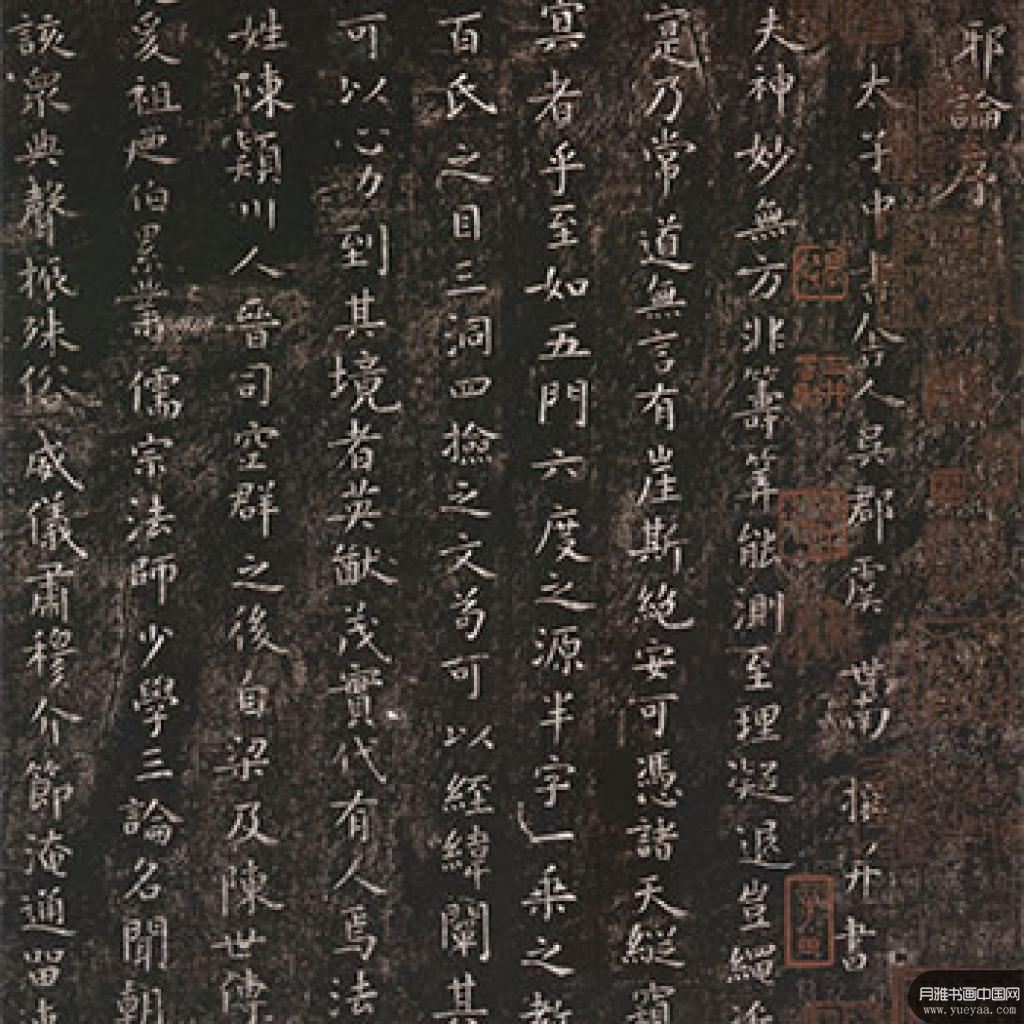 邪論序
太子中書舍人吳郡虞世南撰并書
夫神妙無方非籌筭能測至理凝退豈繩
寔乃常道無言有崖斯絶安可憑諸天縱窺
寘者乎至如五門六度之源半字一乗之教
百氏之目三洞四撿之文苟可以經緯闡其
可以心力到其境者英猷茂實代有人焉法
姓陳潁川人晉司空群之後自梁及陳世傳
爰祖迊伯累葉儒宗法師少學三論名聞朝
該衆典聲振殊俗威儀肅穆介節淹通留連
月雅书画中国网
www.yueyaa.com